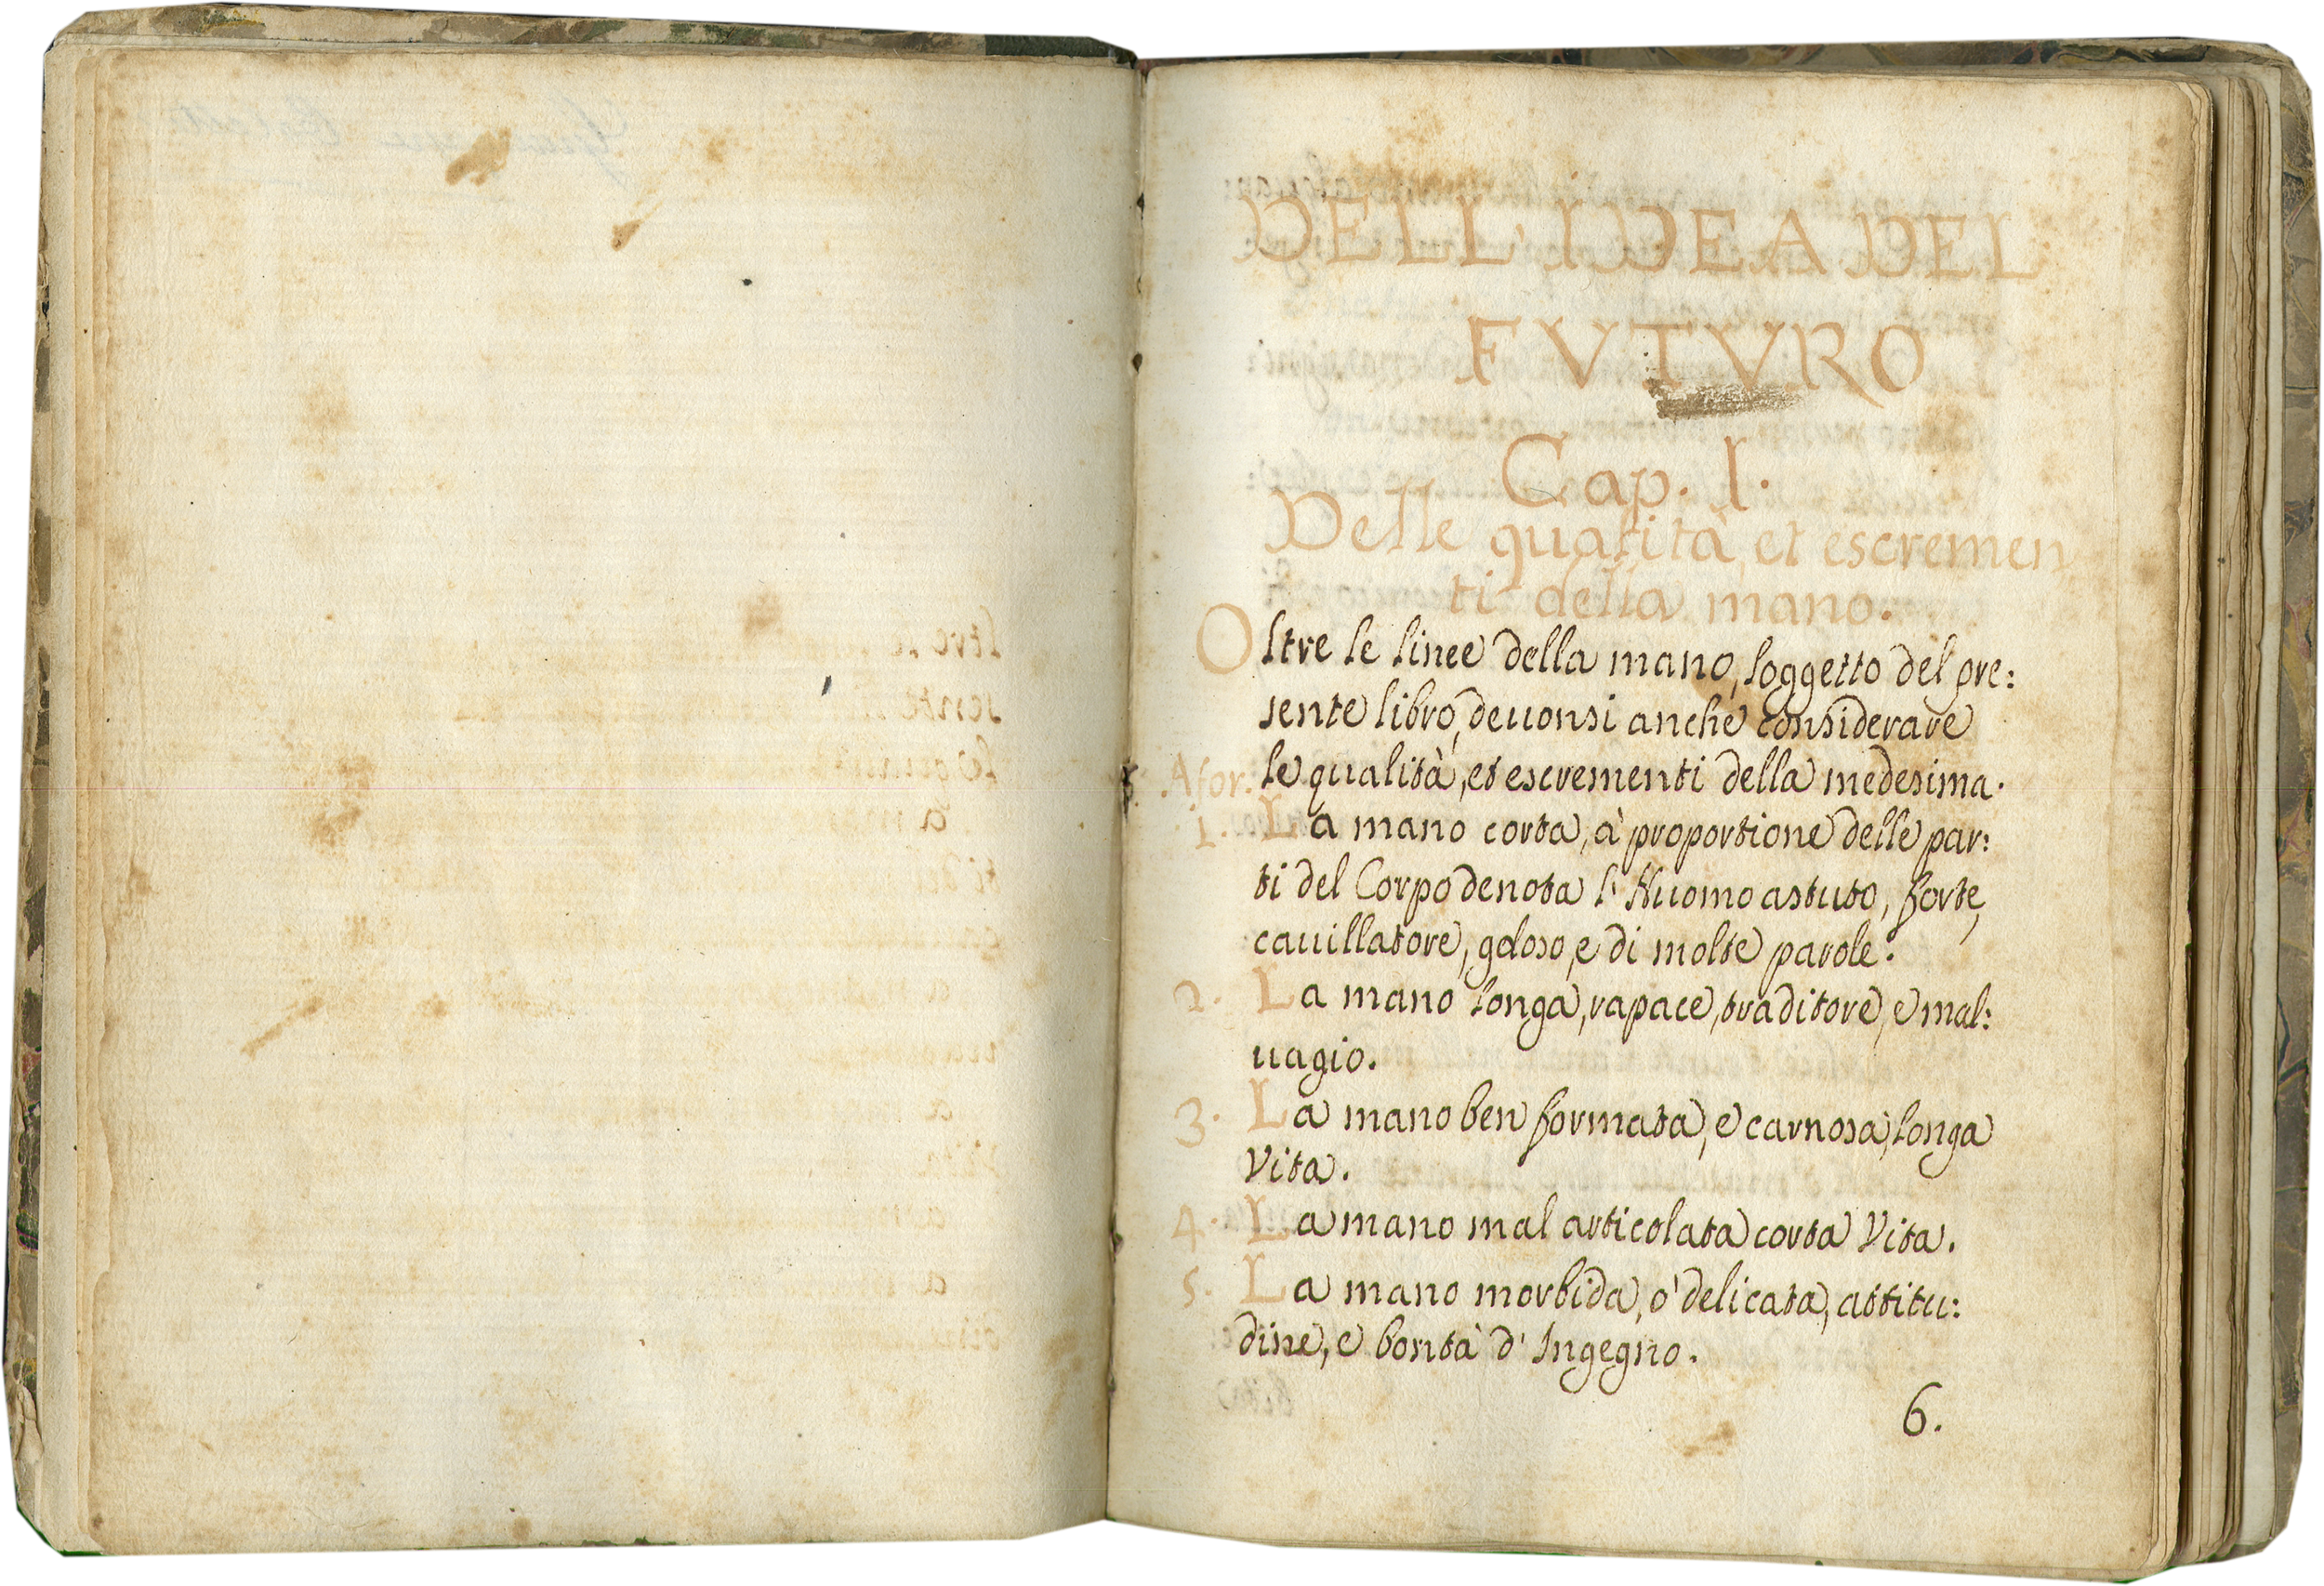 DELL' IDEA DEL
FVTVRO
Cap. I.
Delle qualità, et escremen
ti della mano.
Oltre le linee della mano, soggetto del pre:
sente libro, deuonsi anche considerare
Afor. le qualità, et escrementi della medesima.
1. La mano corta, à proportione delle par:
ti del Corpo denota l' Huomo astuto, forte,
cauillatore, geloso, e di molte parole.
2. La mano longa, rapace, traditore, e mal:
uagio.
3. La mano ben formata, e carnosa, longa
Vita.
4. La mano mal articolata corta Vita.
5. La mano morbida, ò delicata, attitu:
dine, e bontà d' Ingegno.
6.